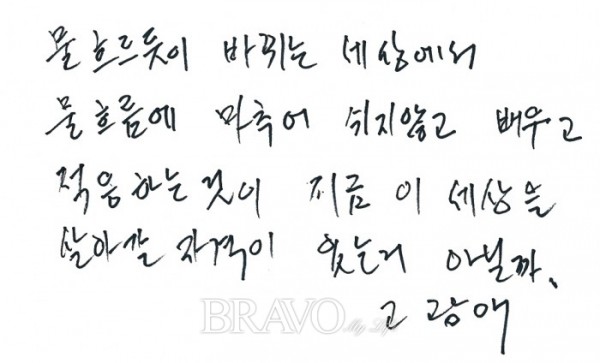 물흐르듯이 바뀌는 세상에서
물흐름에 마추어 쉬지않고 배우고
적응하는것이 지금 이 세상을
살아갈 자격이 있는거 아닐까.
고광애
BRAVO My Life